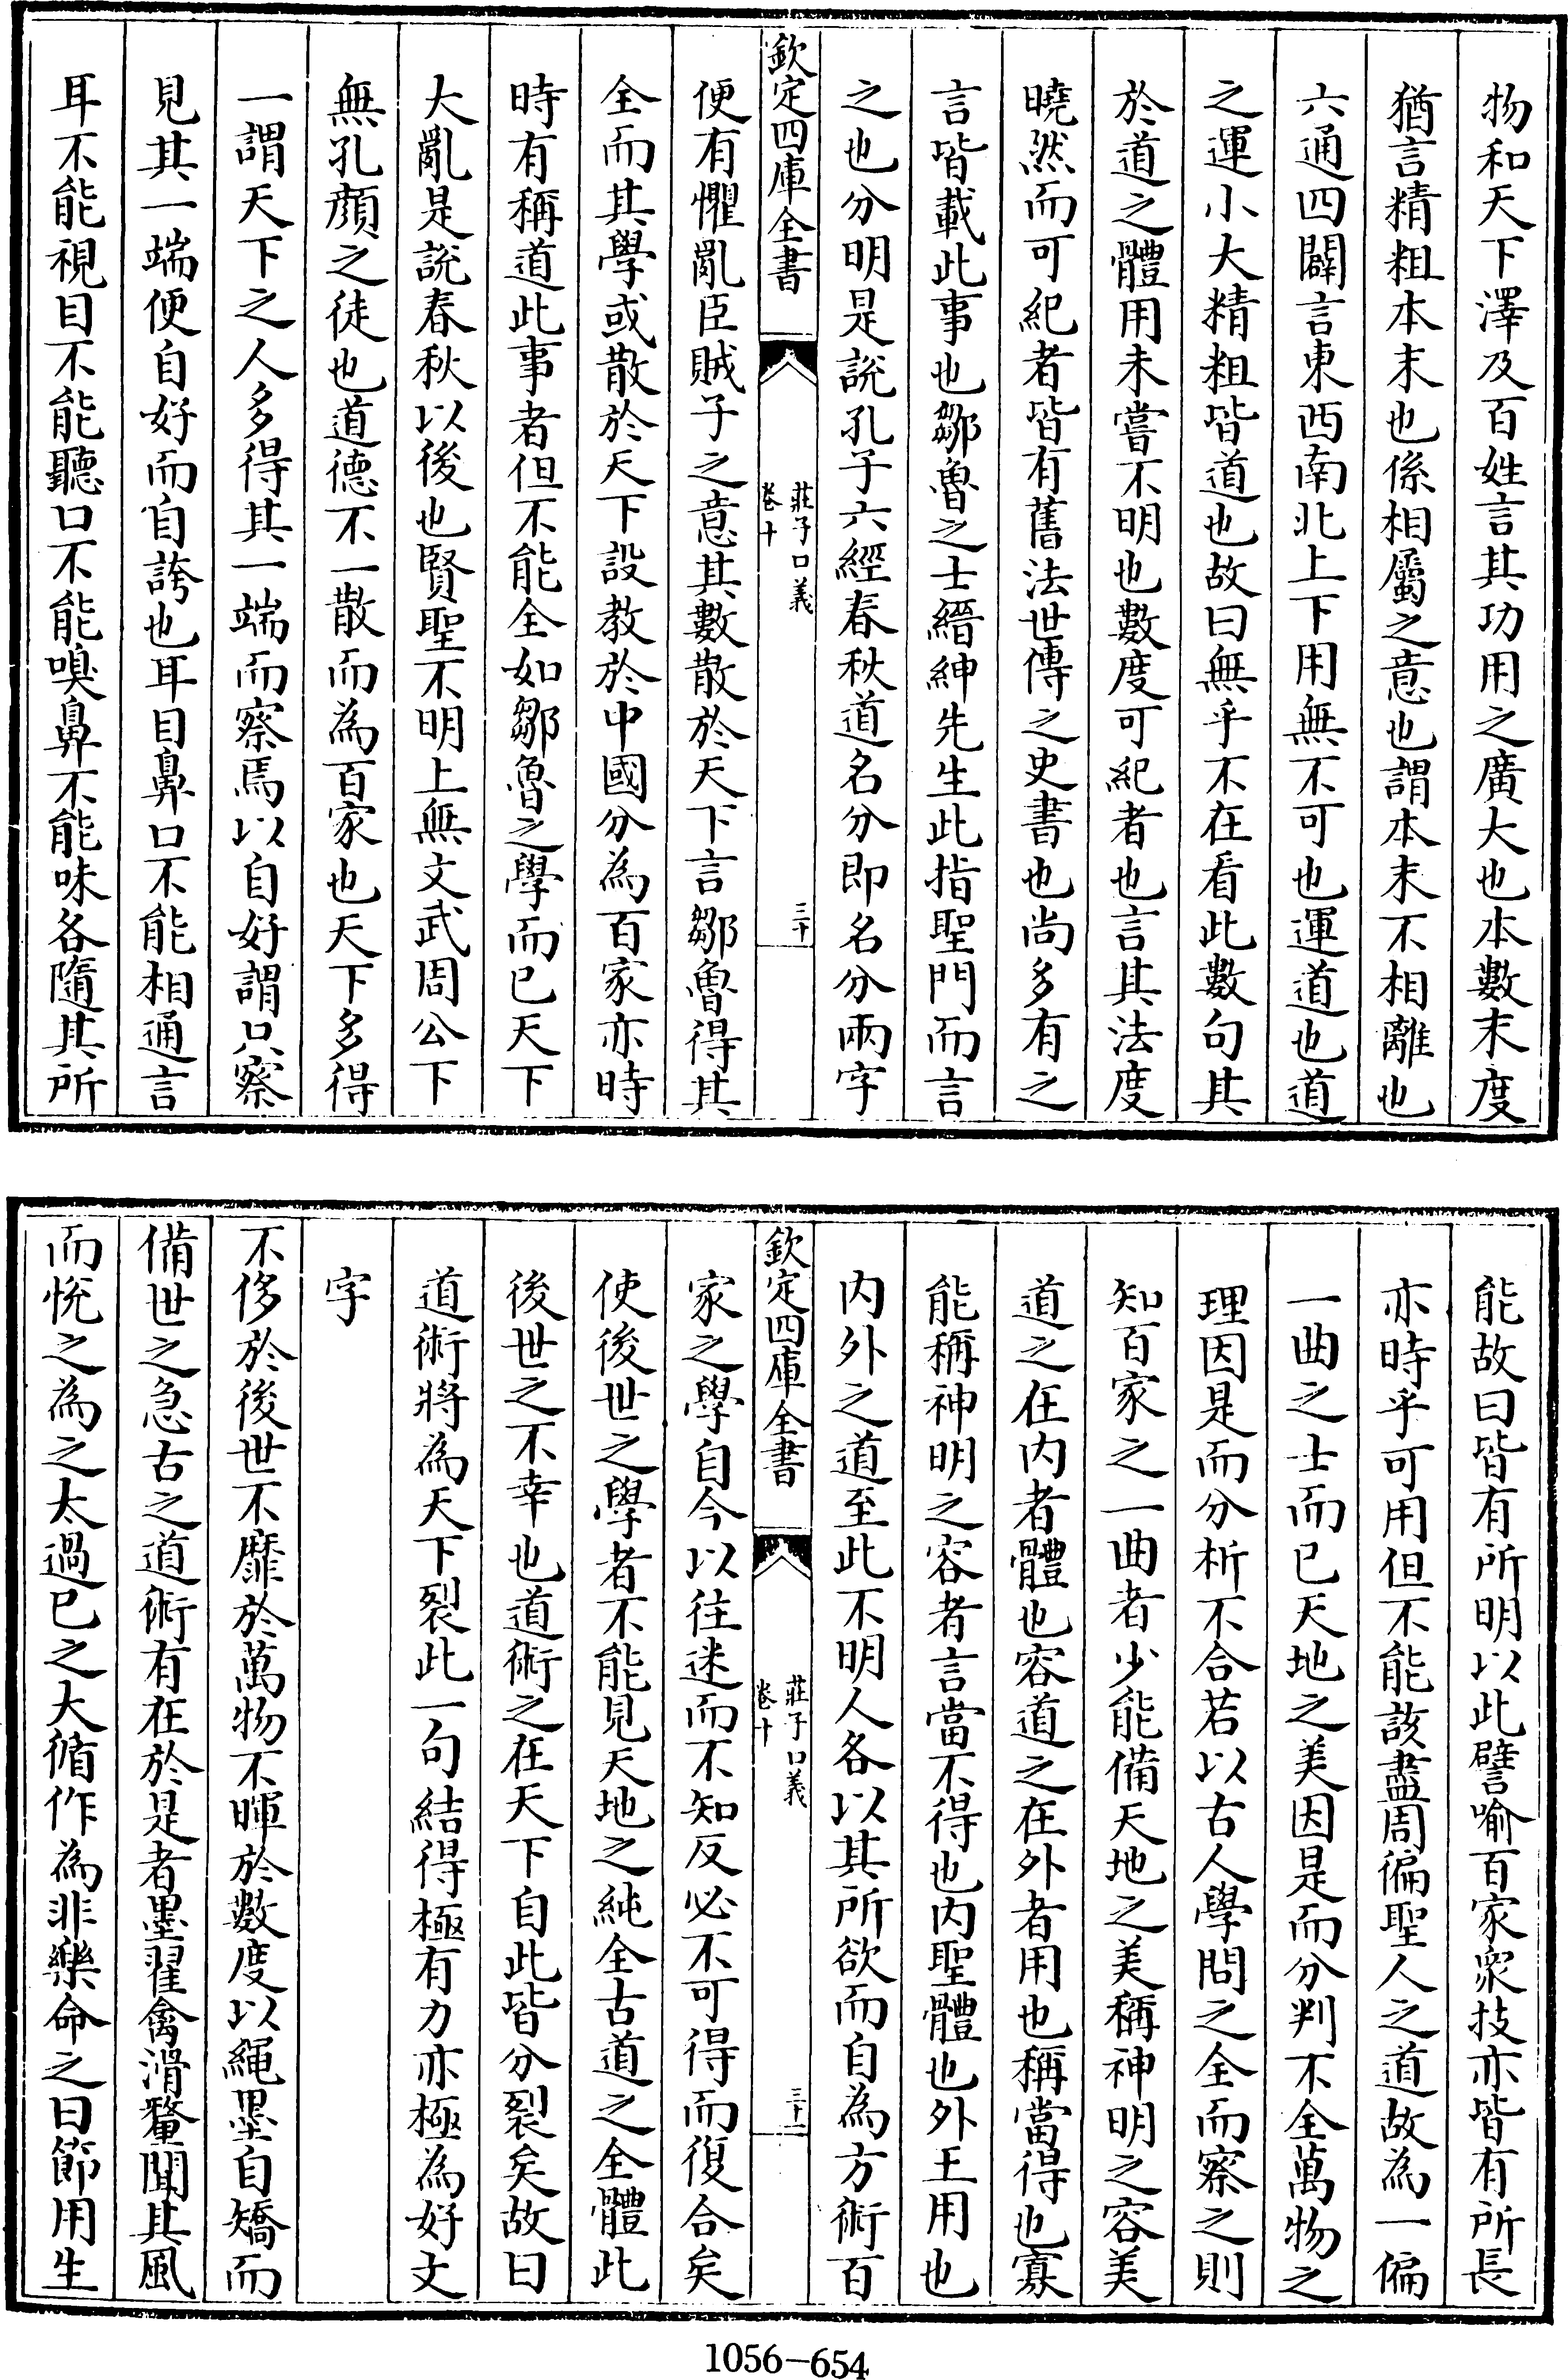 物和天下澤及百姓言其功用之廣大也本數末度
猶言精粗本末也係相屬之意也謂本末不相離也
六通四闢言東西南北上下用無不可也運道也道
之運小大精粗皆道也故曰無乎不在看此數句其
於道之體用未嘗不明也數度可紀者也言其法度
曉然而可紀者皆有舊法世傳之史書也尚多有之
言皆載此事也鄒魯之士縉紳先生此指聖門而言
之也分明是說孔子六經春秋道名分即名分兩字
欽定四庫全書
莊子口義
卷十
三十
便有懼亂臣賊子之意其數散於天下言鄒魯得其
全而其學或散於天下設教於中國分為百家亦時
時有稱道此事者但不能全如鄒魯之學而已天下
大亂是說春秋以後也賢聖不明上無文武周公下
無孔顏之徒也道德不一散而為百家也天下多得
一謂天下之人多得其一端而察焉以自好謂只察
見其一端便自好而自誇也耳目鼻口不能相通言
耳不能視目不能聽口不能嗅鼻不能味各隨其所
能故曰皆有所明以此譬喻百家衆技亦皆有所長
亦時乎可用但不能該盡周徧聖人之道故為一偏
一曲之士而已天地之美因是而分判不全萬物之
理因是而分析不合若以古人學問之全而察之則
知百家之一曲者少能備天地之美稱神明之容美
道之在内者體也容道之在外者用也稱當得也寡
能稱神明之容者言當不得也内聖體也外王用也
内外之道至此不明人各以其所欲而自為方術百
欽定四庫全書
莊子口義
卷十
三十一
家之學自今以往迷而不知反必不可得而復合矣
使後世之學者不能見天地之純全古道之全體此
後世之不幸也道術之在天下自此皆分裂矣故曰
道術將為天下裂此一句結得極有力亦極為好文
字
不侈於後世不靡於萬物不暉於數度以繩墨自矯而
備世之急古之道術有在於是者墨翟禽滑釐聞其風
而悅之為之太過已之大循作為非樂命之曰節用生
1056-654